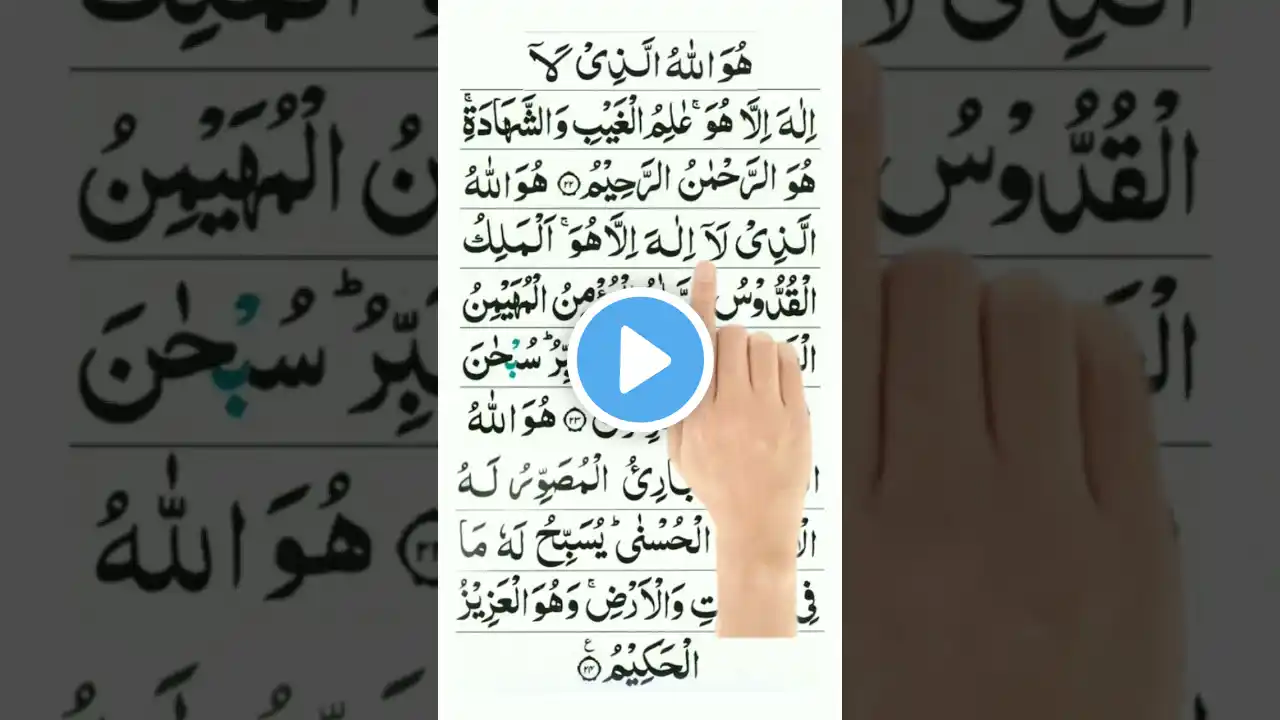 هُوَ اللّٰهُ الَّذِیْ لَاۤ
اِلٰهَ اِلَّا هُوَ ۚ عٰلِمُ الْغَیْبِ وَالشَّهَادَةِ ۚ
هُوَ الرَّحْمٰنُ الرَّحِیْمُ ﴿۲۲﴾ هُوَ اللّٰهُ
الَّذِیْ لَاۤ اِلٰهَ اِلَّا هُوَ ۚ اَلْمَلِكُ
الْقُدُّوْسُ الْمُهَیْمِنُ
سُبْحٰنَ
﴿۲۳﴾ هُوَ اللّٰهُ
الْمُصَوِّرُ لَهُ
الْحُسْنٰی ؕ یُسَبِّحُ لَهٗ مَا
فِی وَالْاَرْضِ ۚ وَهُوَ الْعَزِیْزُ
الْحَكِیْمُ ﴿۲۴﴾